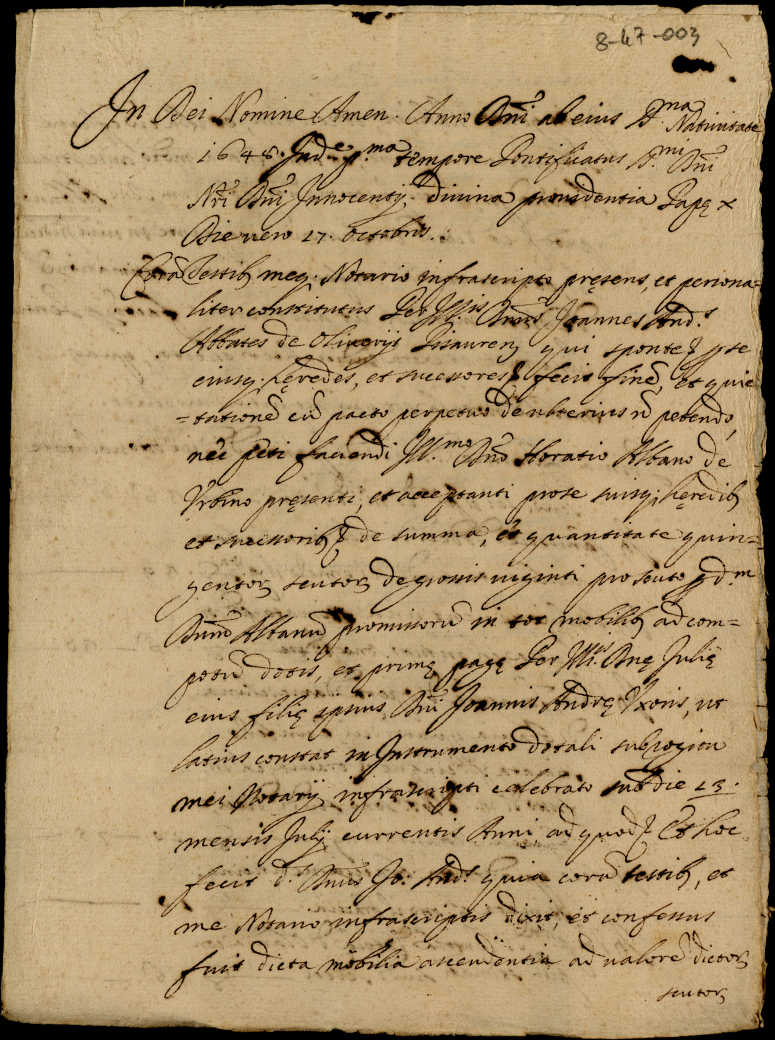 8-47-003
In Dei Nomine Amen. Anno Dni ab eius D.ma Nativitate
1648. Ind.e p.ma tempore Pontificatus D.mi Dni
Nri Dni Innocentij divina providentia Papę x
Die vero 17. octobris.
Corā Testib meq; Notario infrascripto pręsens, et persona=
liter constitutus Per Ill.is Dnus Joannes And.s
Abbates de Oliverijs Pisauren qui sponte ipse
eiusq; hęredes, et successores fecit finē, et quie
=tationē cū pacto perpetuo de ulterius n petendo,
nec peti faciendi Ill.mo Dno Horatio Albano de
Urbino pręsenti, et acceptanti pro se suisq; hęredib
et successorib de summa, et quantitate quin=
gentor scutor de grossis viginti pro scuto p d.m
Dnum Albanū promissorū in tot mobilib ad com=
potū dotis, et primę pagę Per Ill.is Dnę Julię
eius filię ipsius Dni Joannis Andrę Uxoris, ut
latius constat in Instrumento dotali subrogitu
mei Notarij infrascripti celebrato sub die 23.
mensis Julij currentis Anni, ad quod Et hoc
fecit d.s Dnus Jo: And.s quia corā testib, et
me Notario infrascriptis dixit, et confessus
fuit dicta mobilia ascendentia ad valorē dictor
scutor